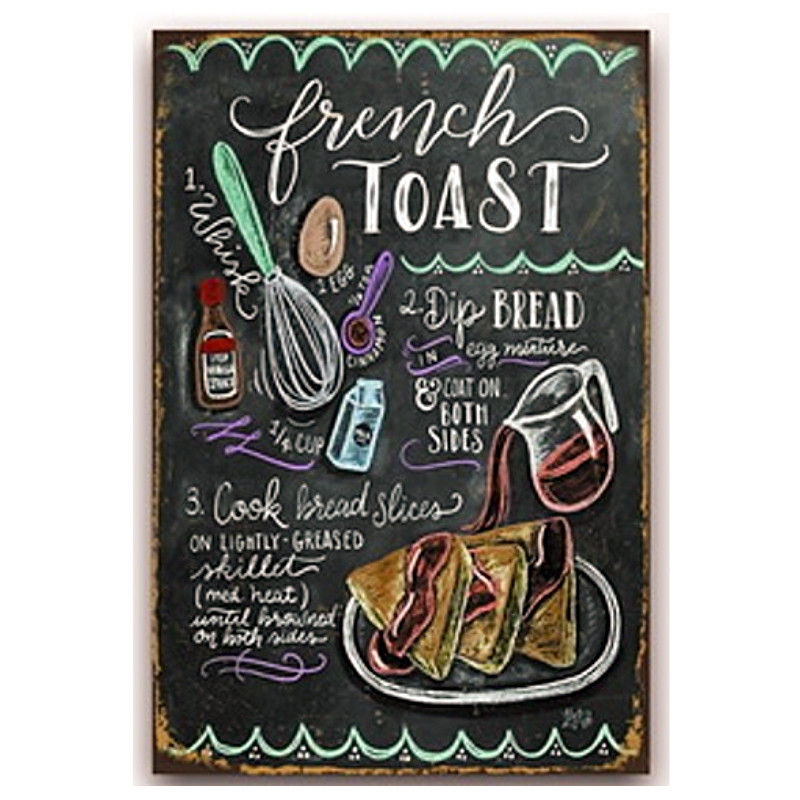 french
TOAST
1. Whisk
1 EGG
CINNAMON
1/4 CUP
2. Dip BREAD
IN egg mixture
& COAT ON
BOTH
SIDES
3. Cook bread slices
ON LIGHTLY-GREASED
skillet
(med heat)
until browned
on both sides